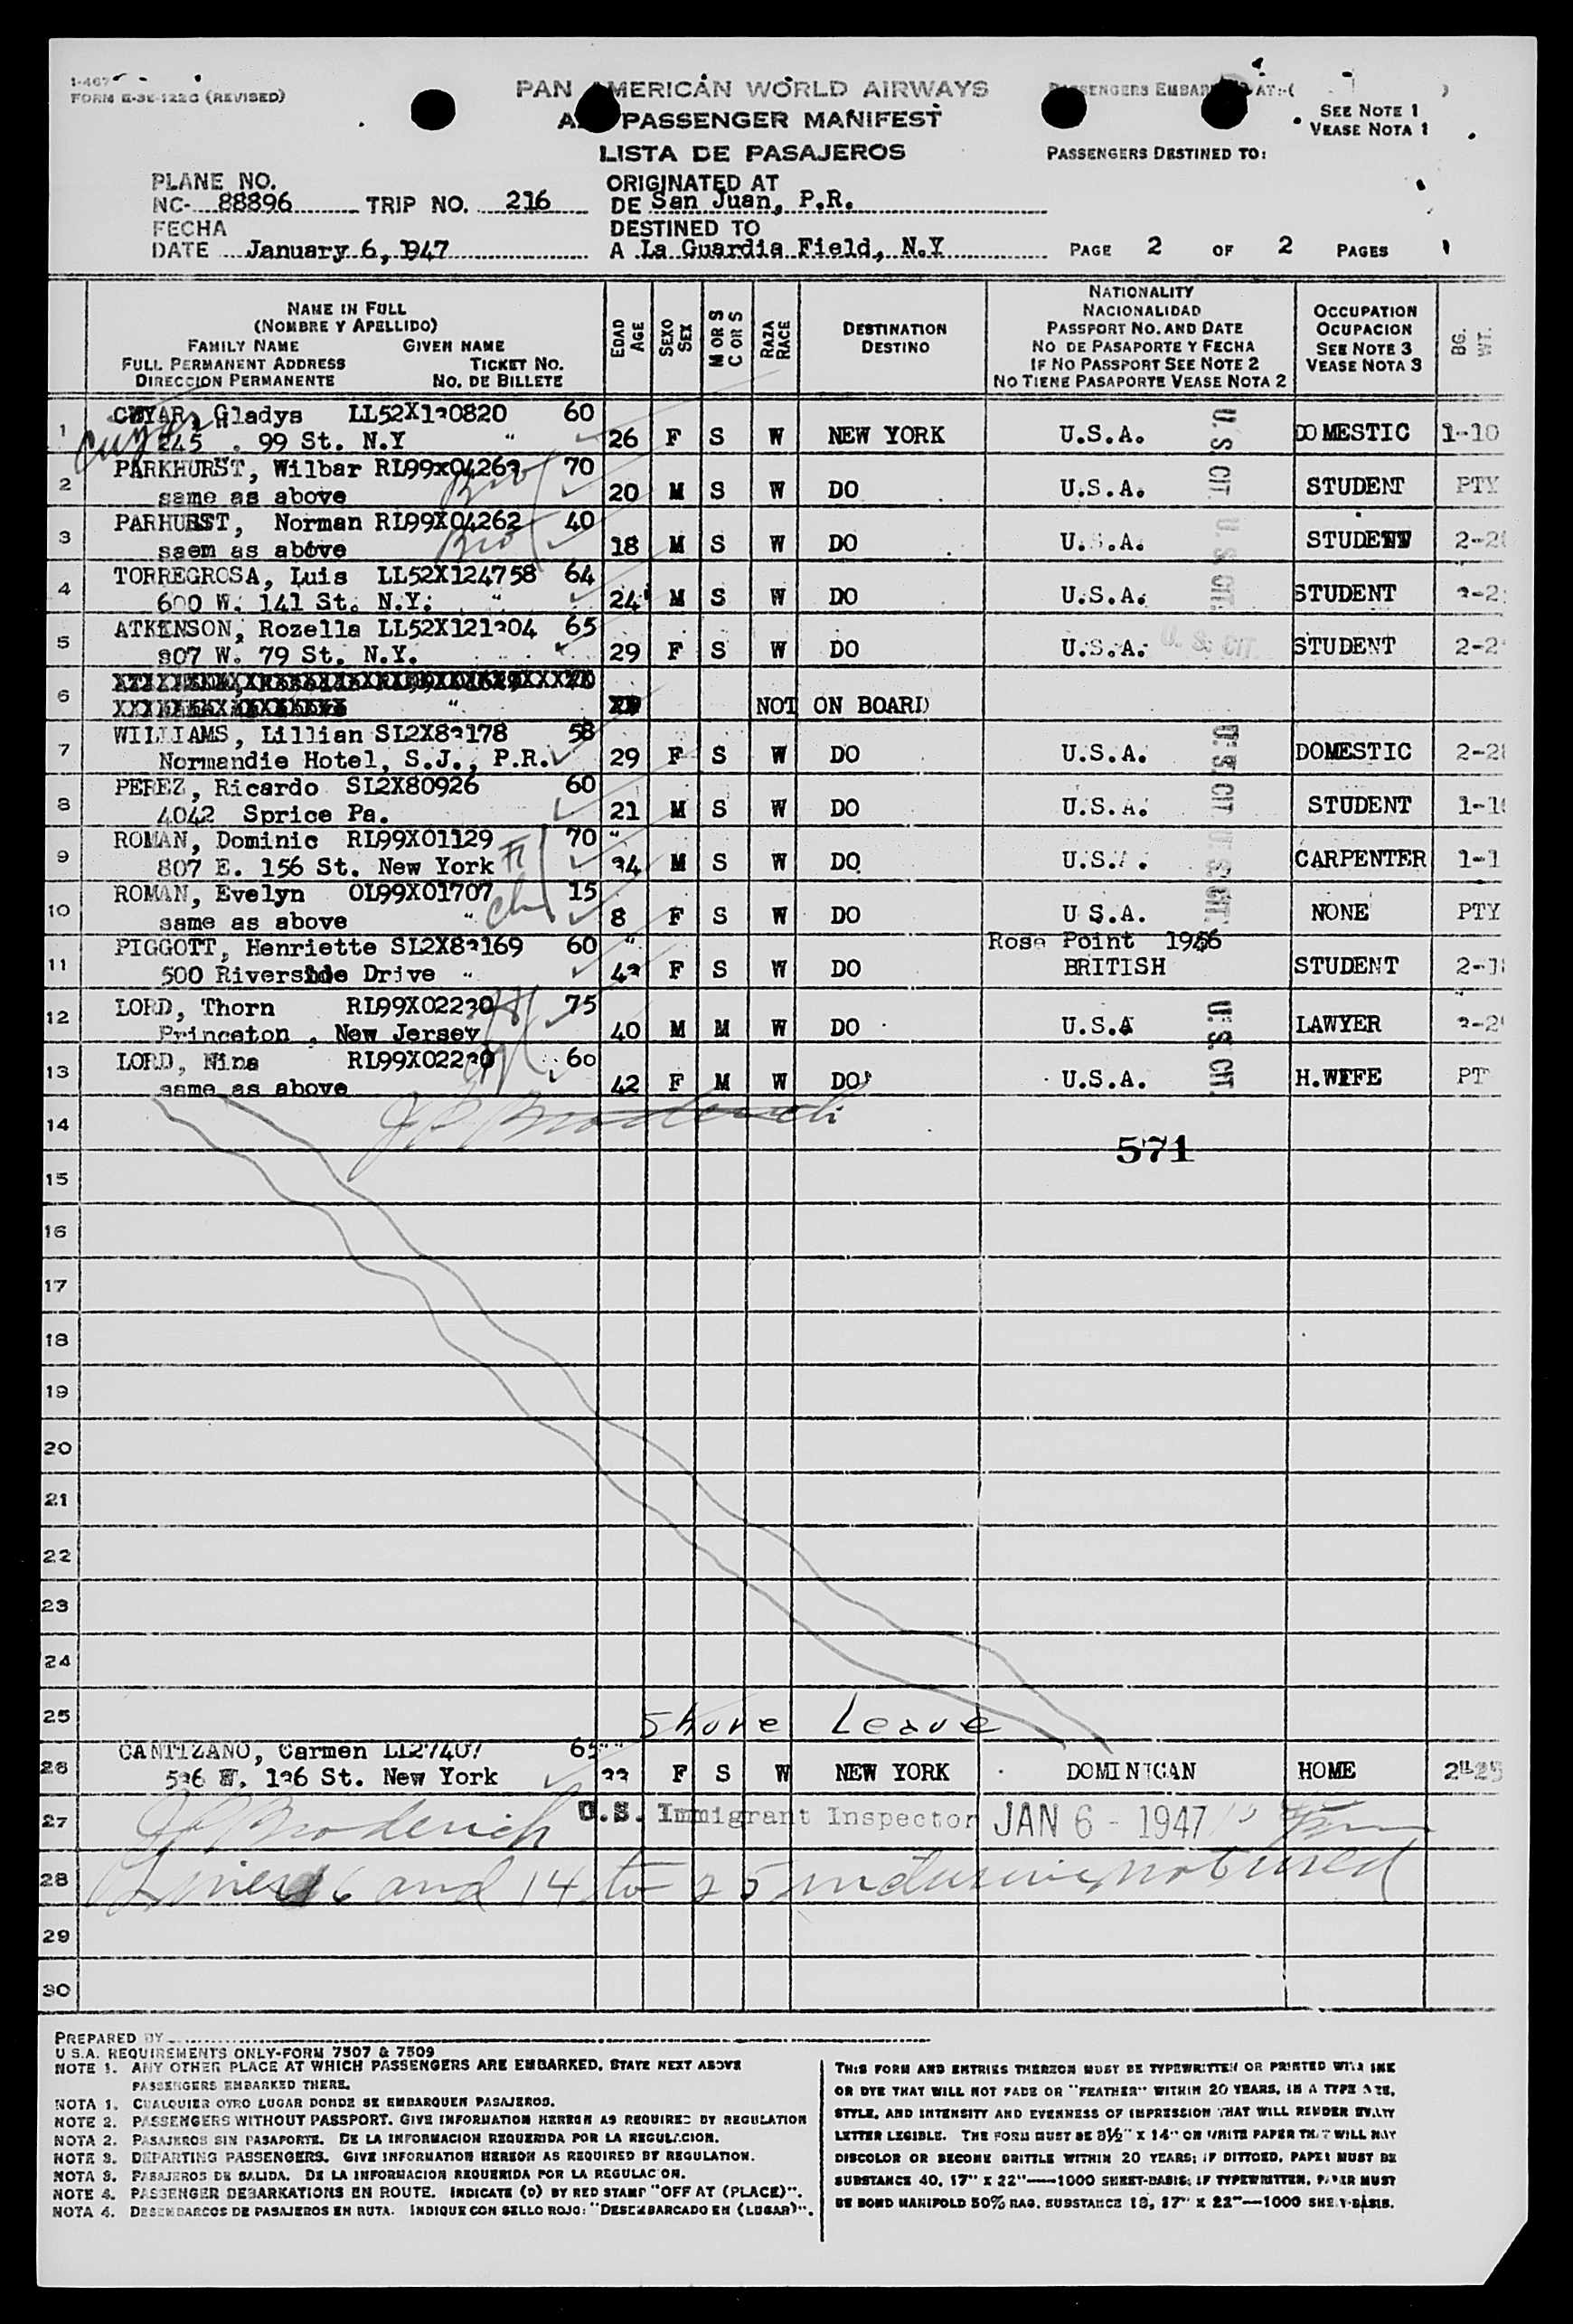 FORM E-3E-122C (REVISED)
PAN AMERICAN WORLD AIRWAYS
PASSENGER MANIFEST
LISTA DE PASAJEROS
SEE NOTE 1
VEASE NOTA 1
PASSENGERS DESTINED TO:
PLANE NO.
NC- 88896 TRIP NO. 216
FECHA
DATE January 6, 1947
ORIGINATED AT
DE San Juan, P.R.
DESTINED TO
A La Guardia Field, N.Y
PAGE 2 OF 2 PAGES
NAME IN FULL
(NOMBRE Y APELLIDO)
FAMILY NAME GIVEN NAME
FULL PERMANENT ADDRESS TICKET NO.
DIRECCION PERMANENTE NO. DE BILLETE
EDAD AGE
SEXO SEX
M OR S C OR S
RAZA RACE
DESTINATION
DESTINO
NATIONALITY
NACIONALIDAD
PASSPORT NO. AND DATE
NO DE PASAPORTE Y FECHA
IF NO PASSPORT SEE NOTE 2
NO TIENE PASAPORTE VEASE NOTA 2
OCCUPATION
OCUPACION
SEE NOTE 3
VEASE NOTA 3
BG. WT.
1 Gladys 60
Cuyar 245 . 99 St. N.Y " 26 F S W NEW YORK U.S.A. U.S. CIT. DOMESTIC 1-10
2 PARKHURST, Wilbar 70
same as above 20 M S W DO U.S.A. STUDENT PTY
3 PARHURST, Norman RL99X04262 40
saem as above 18 M S W DO U.S.A. U.S. CIT. STUDENT
4 TORREGROSA, Luis LL52X124758 64
600 W. 141 St. N.Y. " 24 M S W DO U.S.A. STUDENT
5 ATKENSON, Rozella 65
W. 79 St. N.Y. 29 F S W DO U.S.A. U.S. CIT. STUDENT
6 NOT ON BOARD
7 WILLIAMS, Lillian 58
Normandie Hotel, S.J., P.R. 29 F S W DO U.S.A. U.S. CIT. DOMESTIC
8 PEREZ, Ricardo SL2X80926 60
4042 Sprice Pa. 21 M S W DO U.S.A. STUDENT
9 ROMAN, Dominic RL99X01129 70 "
807 E. 156 St. New York 34 M S W DO U.S. . U.S. CIT. CARPENTER
10 ROMAN, Evelyn OL99X01707 15
same as above " ch 8 F S W DO U S.A. NONE PTY
11 PIGGOTT, Henriette 60 " Rose Point
500 Riverside Drive " F S W DO BRITISH STUDENT
12 LORD, Thorn 75
Princeton , New Jersey 40 M M W DO U.S.A U.S. CIT. LAWYER
13 LORD, Nina 60
same as above 42 F M W DO U.S.A. H.WIFE PT
14 J P Broderick
571
15
16
17
18
19
20
21
22
23
24
25 Shore Leave
26 CANTIZANO, Carmen LL27407
St. New York F S W NEW YORK DOMINICAN HOME
27 J P Broderick U.S. Immigrant Inspector JAN 6 - 1947
28 Lines 6 and 14 to 25 inclusive not used
29
30
PREPARED BY
U.S.A. REQUIREMENTS ONLY-FORM 7507 & 7509
NOTE 1. ANY OTHER PLACE AT WHICH PASSENGERS ARE EMBARKED, STATE NEXT ABOVE
PASSENGERS EMBARKED THERE.
NOTA 1. CUALQUIER OTRO LUGAR DONDE SE EMBARQUEN PASAJEROS.
NOTE 2. PASSENGERS WITHOUT PASSPORT. GIVE INFORMATION HEREON AS REQUIRED BY REGULATION
NOTA 2. PASAJEROS SIN PASAPORTE. DE LA INFORMACION REQUERIDA POR LA REGULACION.
NOTE 3. DEPARTING PASSENGERS. GIVE INFORMATION HEREON AS REQUIRED BY REGULATION.
NOTA 3. PASAJEROS DE SALIDA. DE LA INFORMACION REQUERIDA POR LA REGULACION.
NOTE 4. PASSENGER DEBARKATIONS EN ROUTE. INDICATE (D) BY RED STAMP "OFF AT (PLACE)".
NOTA 4. DESEMBARCOS DE PASAJEROS EN RUTA. INDIQUE CON SELLO ROJO: "DESEMBARCADO EN (LUGAR)".
THIS FORM AND ENTRIES THEREON MUST BE TYPEWRITTEN OR PRINTED WITH INK
OR DYE THAT WILL NOT FADE OR "FEATHER" WITHIN 20 YEARS, IN A TYPE SIZE,
STYLE, AND INTENSITY AND EVENNESS OF IMPRESSION THAT WILL RENDER EVERY
LETTER LEGIBLE. THE FORM MUST BE 8½" X 14" ON WHITE PAPER THAT WILL NOT
DISCOLOR OR BECOME BRITTLE WITHIN 20 YEARS; IF DITTOED, PAPER MUST BE
SUBSTANCE 40, 17" X 22"—1000 SHEET-BASIS; IF TYPEWRITTEN, PAPER MUST
BE BOND MANIFOLD 50% RAG. SUBSTANCE 18, 17" X 22"—1000 SHEET-BASIS.